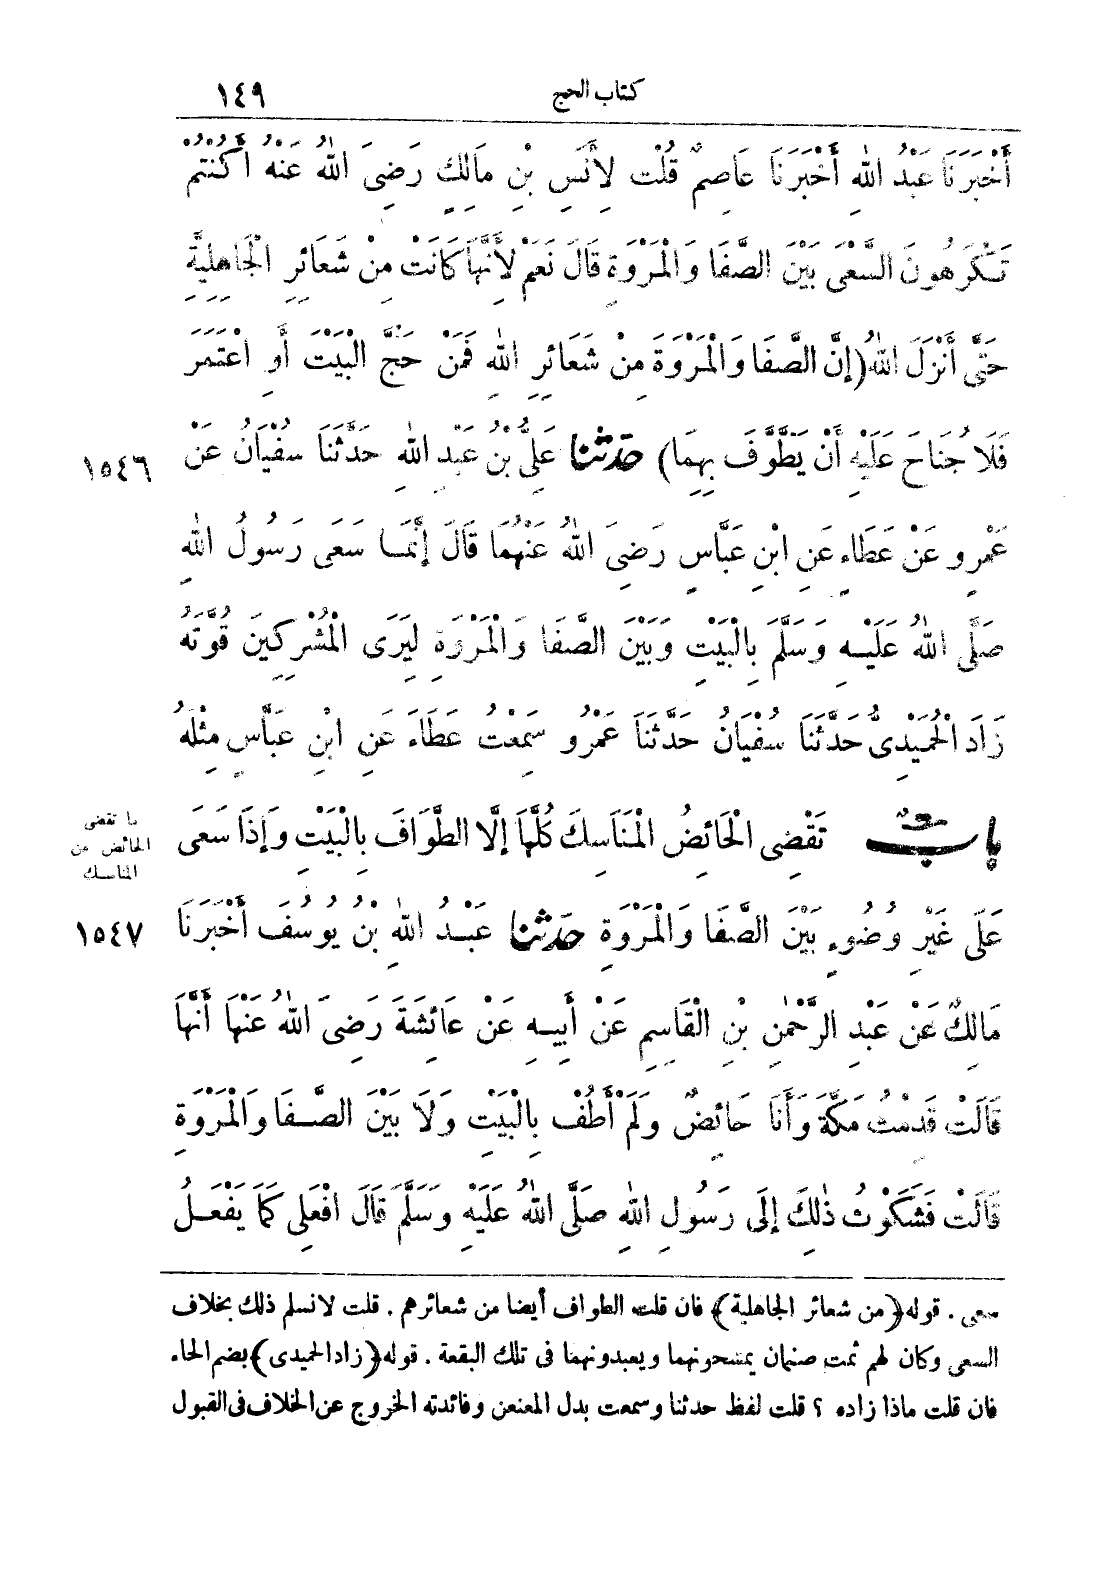 كتاب الحج ١٤٩
أَخْبَرَنَا عَبْدُ اللهِ أَخْبَرَنَا عَاصِمٌ قُلْتُ لِأَنَسِ بْنِ مَالِكٍ رَضِىَ اللهُ عَنْهُ أَكُنْتُمْ
تَكْرَهُونَ السَّعْىَ بَيْنَ الصَّفَا وَالْمَرْوَةِ قَالَ نَعَمْ لِأَنَّهَا كَانَتْ مِنْ شَعَائِرِ الْجَاهِلِيَّةِ
حَتَّى أَنْزَلَ اللهُ (إِنَّ الصَّفَا وَالْمَرْوَةَ مِنْ شَعَائِرِ اللهِ فَمَنْ حَجَّ الْبَيْتَ أَوِ اعْتَمَرَ
فَلَا جُنَاحَ عَلَيْهِ أَنْ يَطَّوَّفَ بِهِمَا) حَدَّثَنَا عَلِىُّ بْنُ عَبْدِ اللهِ حَدَّثَنَا سُفْيَانُ عَنْ
١٥٤٦
عَمْرٍو عَنْ عَطَاءٍ عَنِ ابْنِ عَبَّاسٍ رَضِىَ اللهُ عَنْهُمَا قَالَ إِنَّمَا سَعَى رَسُولُ اللهِ
صَلَّى اللهُ عَلَيْهِ وَسَلَّمَ بِالْبَيْتِ وَبَيْنَ الصَّفَا وَالْمَرْوَةِ لِيَرَى الْمُشْرِكِينَ قُوَّتَهُ
زَادَ الْحُمَيْدِىُّ حَدَّثَنَا سُفْيَانُ حَدَّثَنَا عَمْرٌو سَمِعْتُ عَطَاءً عَنِ ابْنِ عَبَّاسٍ مِثْلَهُ
بَابٌ تَقْضِى الْحَائِضُ الْمَنَاسِكَ كُلَّهَا إِلَّا الطَّوَافَ بِالْبَيْتِ وَإِذَا سَعَى
ما تقضى
الحائض من
المناسك
عَلَى غَيْرِ وُضُوءٍ بَيْنَ الصَّفَا وَالْمَرْوَةِ حَدَّثَنَا عَبْدُ اللهِ بْنُ يُوسُفَ أَخْبَرَنَا
١٥٤٧
مَالِكٌ عَنْ عَبْدِ الرَّحْمٰنِ بْنِ الْقَاسِمِ عَنْ أَبِيهِ عَنْ عَائِشَةَ رَضِىَ اللهُ عَنْهَا أَنَّهَا
قَالَتْ قَدِمْتُ مَكَّةَ وَأَنَا حَائِضٌ وَلَمْ أَطُفْ بِالْبَيْتِ وَلَا بَيْنَ الصَّفَا وَالْمَرْوَةِ
قَالَتْ فَشَكَوْتُ ذٰلِكَ إِلَى رَسُولِ اللهِ صَلَّى اللهُ عَلَيْهِ وَسَلَّمَ قَالَ افْعَلِى كَمَا يَفْعَلُ
سعى . قوله (من شعائر الجاهلية) فان قلت الطواف أيضا من شعائرهم . قلت لانسلم ذلك بخلاف
السعى وكان لهم ثمت صنمان يمسحونهما ويعبدونهما فى تلك البقعة . قوله (زاد الحميدى) بضم الحاء
فان قلت ماذا زاده ؟ قلت لفظ حدثنا وسمعت بدل المعنعن وفائدته الخروج عن الخلاف فى القبول